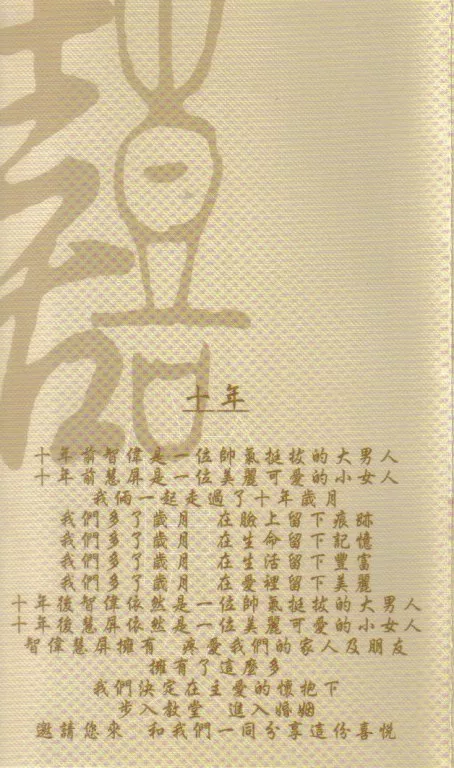 囍
十年
十年前智偉是一位帥氣挺拔的大男人
十年前慧屏是一位美麗可愛的小女人
我倆一起走過了十年歲月
我們多了歲月 在臉上留下痕跡
我們多了歲月 在生命留下記憶
我們多了歲月 在生活留下豐富
我們多了歲月 在愛裡留下美麗
十年後智偉依然是一位帥氣挺拔的大男人
十年後慧屏依然是一位美麗可愛的小女人
智偉慧屏擁有 疼愛我們的家人及朋友
擁有了這麼多
我們決定在主愛的懷抱下
步入教堂 進入婚姻
邀請您來 和我們一同分享這份喜悅